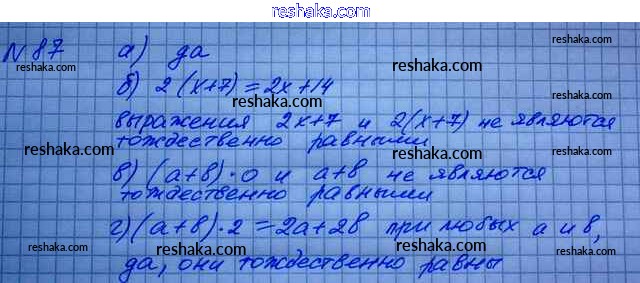 reshaka.com
№87 а) да
reshaka.com
б) 2(x+7)=2x+14
reshaka.com
reshaka.com
выражения 2x+7 и 2(x+7) не являются
тождественно равными
reshaka.com
reshaka.com
в) (a+b)·0 и a+b не являются
тождественно равными
reshaka.com
reshaka.com
г) (a+b)·2=2a+2b при любых a и b,
reshaka.com
reshaka.com
да, они тождественно равны
reshaka.com